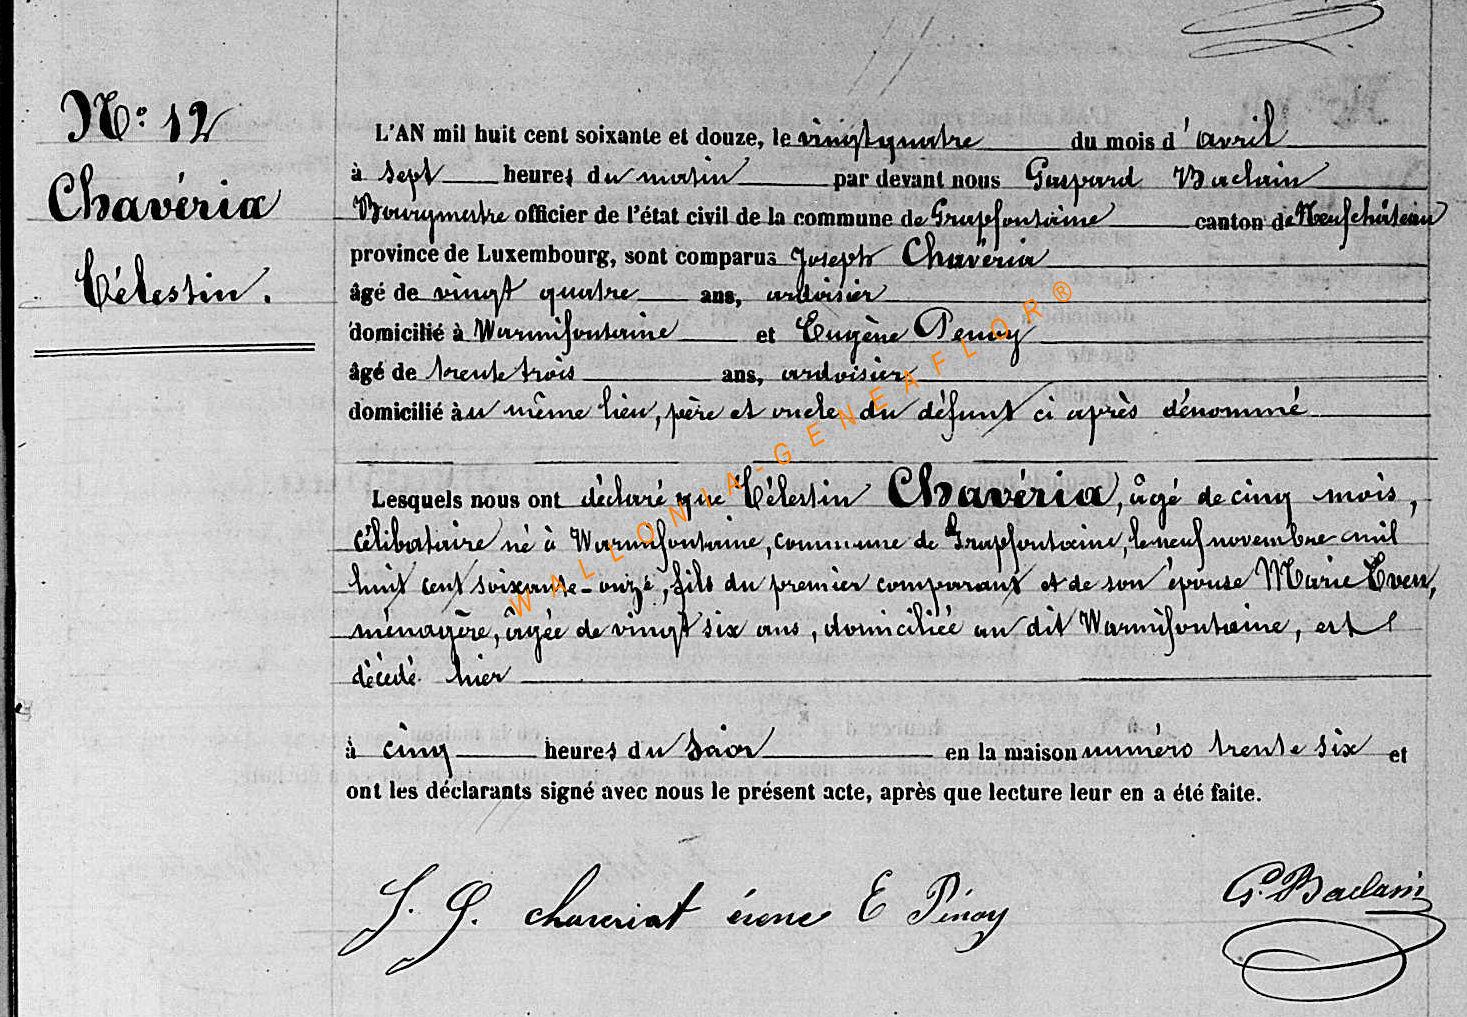 N° 12
Chavéria
Célestin.
L'AN mil huit cent soixante et douze, le vingt quatre du mois d'avril
à sept heures du matin par devant nous Gaspard Baclain
Bourgmestre officier de l'état civil de la commune de Grapfontaine canton de Neufchâteau
province de Luxembourg, sont comparus Joseph Chavéria
âgé de vingt quatre ans, ardoisier
domicilié à Warmifontaine et Eugène Penoy
âgé de trente trois ans, ardoisier
domicilié au même lieu, père et oncle du défunt ci après dénommé
Lesquels nous ont déclaré que Célestin Chavéria, âgé de cinq mois,
célibataire né à Warmifontaine, commune de Grapfontaine, le neuf novembre mil
huit cent soixante-onze, fils du premier comparant et de son épouse Marie Even,
ménagère, âgée de vingt six ans, domiciliée au dit Warmifontaine, est
décédé hier
à cinq heures du soir en la maison numéro trente six et
ont les déclarants signé avec nous le présent acte, après que lecture leur en a été faite.
J. J. chaveriat E Pénoy G. Baclain
WALLONIA-GENEAFLOR®